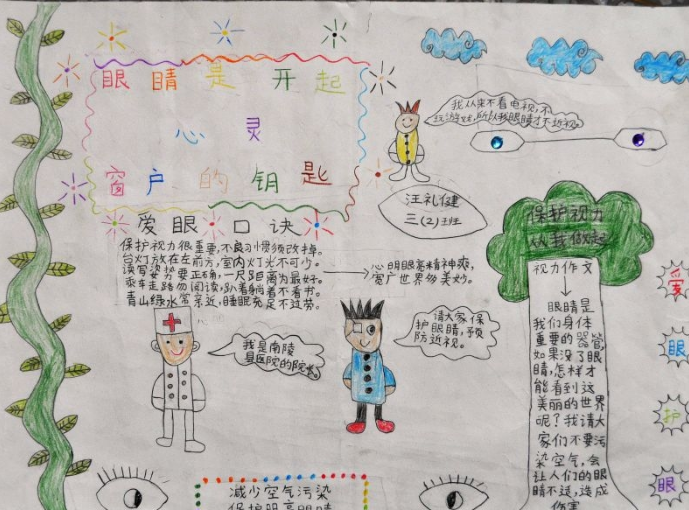 眼睛是开起
心灵
窗户的钥匙
我从来不看电视,不
玩游戏,所以我眼睛才不近视。
汪礼健
三(2)班
爱眼口诀
保护视力很重要,不良习惯须改掉。
台灯放在左前方,室内灯光不可少。
读写姿势要正确,一尺距离为最好。
乘车走路勿阅读,趴着躺着不看书。
青山绿水常亲近,睡眠充足不过劳。
心明眼亮精神爽,
宽广世界多美妙。
保护视力
从我做起
视力作文
眼睛是
我们身体
重要的器管,
如果没了眼
睛,怎样才
能看到这
美丽的世界
呢?我请大
家们不要污
染空气,会
让人们的眼
睛不适,造成
伤害
我是南陵
县医院的院长。
请大家保
护眼睛,预
防近视。
爱
眼
护
眼
减少空气污染
保护明亮眼睛